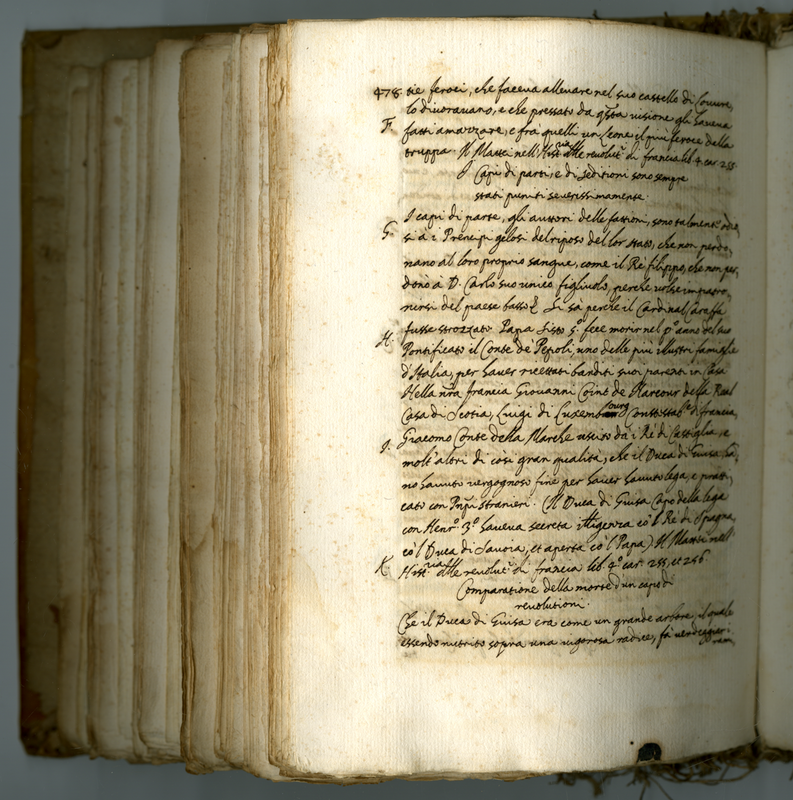 478. tie feroci, che faceva allevare nel suo castello di Louvre,
lo divoravano, e che pressato da q̃sta visione gli haveva
F. fatti amazzare, e fra quelli un Leone il più feroce della
truppa. Il Mattei nell'Hist.ria delle revolut.i di francia lib. 4. car. 255.
I Capi di parti, e di seditioni sono sempre
stati puniti severissimamente.
G. I capi di parte, gli auttori delle fattioni, sono talmente odio,
si à i Prencipi gelosi del riposo del lor stato, che non perdo,
nano al loro proprio sangue, come il Rè filippo, che non per,
donò a D. Carlo suo unico figliuolo, perche volse impatro,
nirsi del paese basso. Si sà perche il Cardinal Caraffa
fusse strozzato. Papa Sisto 5.º fece morir nel p.º anno del suo
H. Pontificato il Conte de Pepoli, uno delle più illustri famiglie
d'Italia, per haver ricettati banditi suoi parenti in Casa
Nella nr̃a francia Giovanni Coint de Harcour della Real
Casa di Scotia, Luigi di Luxembourg Constestab.le di francia,
I. Giacomo Conte della Marche uscito da i Rè di Castiglia, e
molt'altri di cosi gran qualità, che il Duca di Guisa hà,
no havuto vergognoso fine per haver havuto lega, e prati,
cato con Pnp̃i stranieri. (Il Duca di Guisa Capo della lega
con Henr.º 3.º haveva secreta itligenza cõ'l Rè di Spagna,
cõ'l Duca di Savoia, et aperta cõ'l Papa). Il Mattei nell'
K. Hist.ria delle revolut.i di francia lib. 4.º car. 255, et 256.
Comparatione della morte d'un capo di
revolutioni.
Che il Duca di Guisa era come un grande arbore, il quale
essendo nutrito sopra una vigorosa radice, fà verdeggiar i
rami,